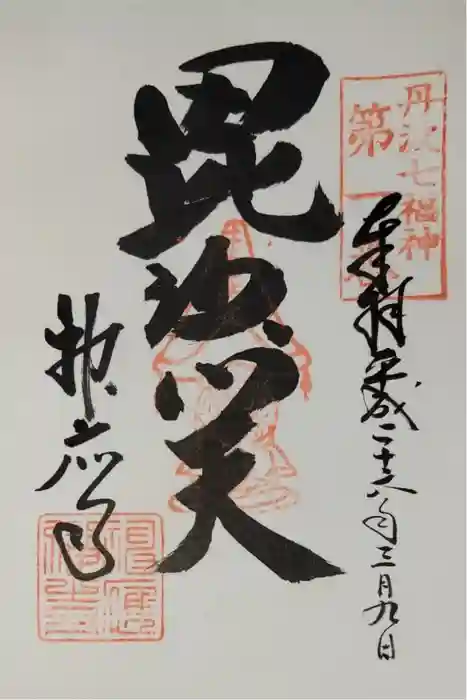 丹波七福神
第一番
奉拝 平成二十六年三月九日
毘沙門天
神応寺